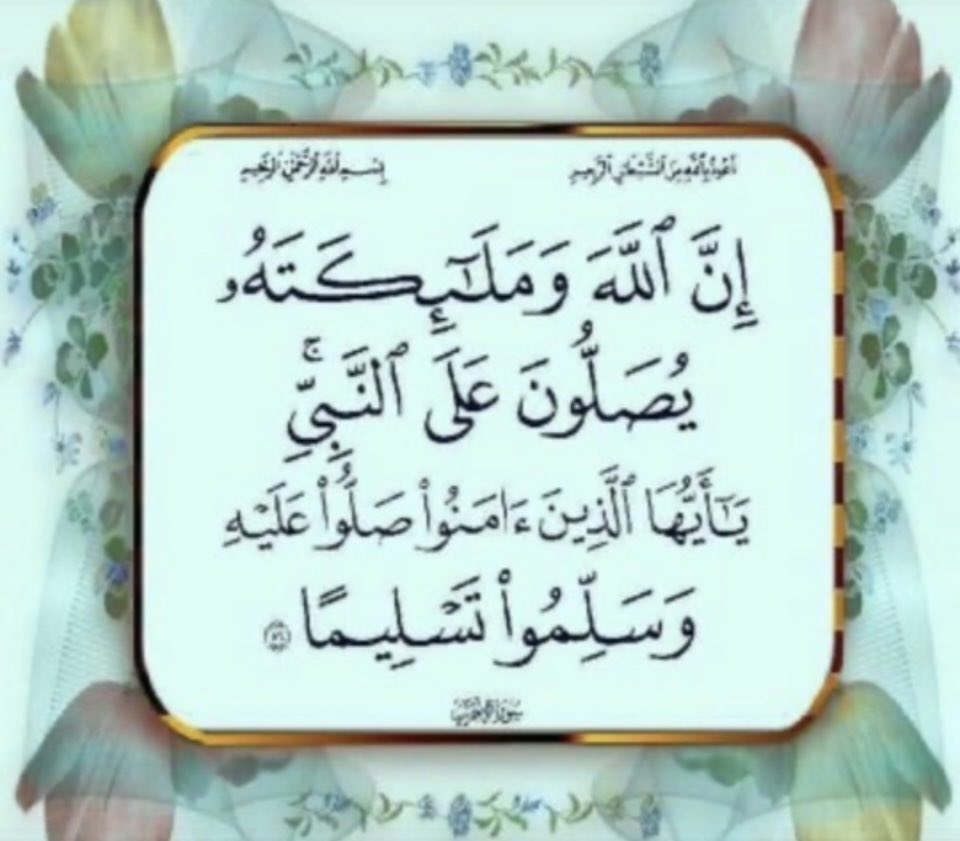 أعوذ بالله من الشيطان الرجيم بسم الله الرحمن الرحيم
إِنَّ ٱللَّهَ وَمَلَـٰٓئِكَتَهُۥ
يُصَلُّونَ عَلَى ٱلنَّبِىِّ ۚ
يَـٰٓأَيُّهَا ٱلَّذِينَ ءَامَنُوا۟ صَلُّوا۟ عَلَيْهِ
وَسَلِّمُوا۟ تَسْلِيمًا ٥٦
سورة الأحزاب